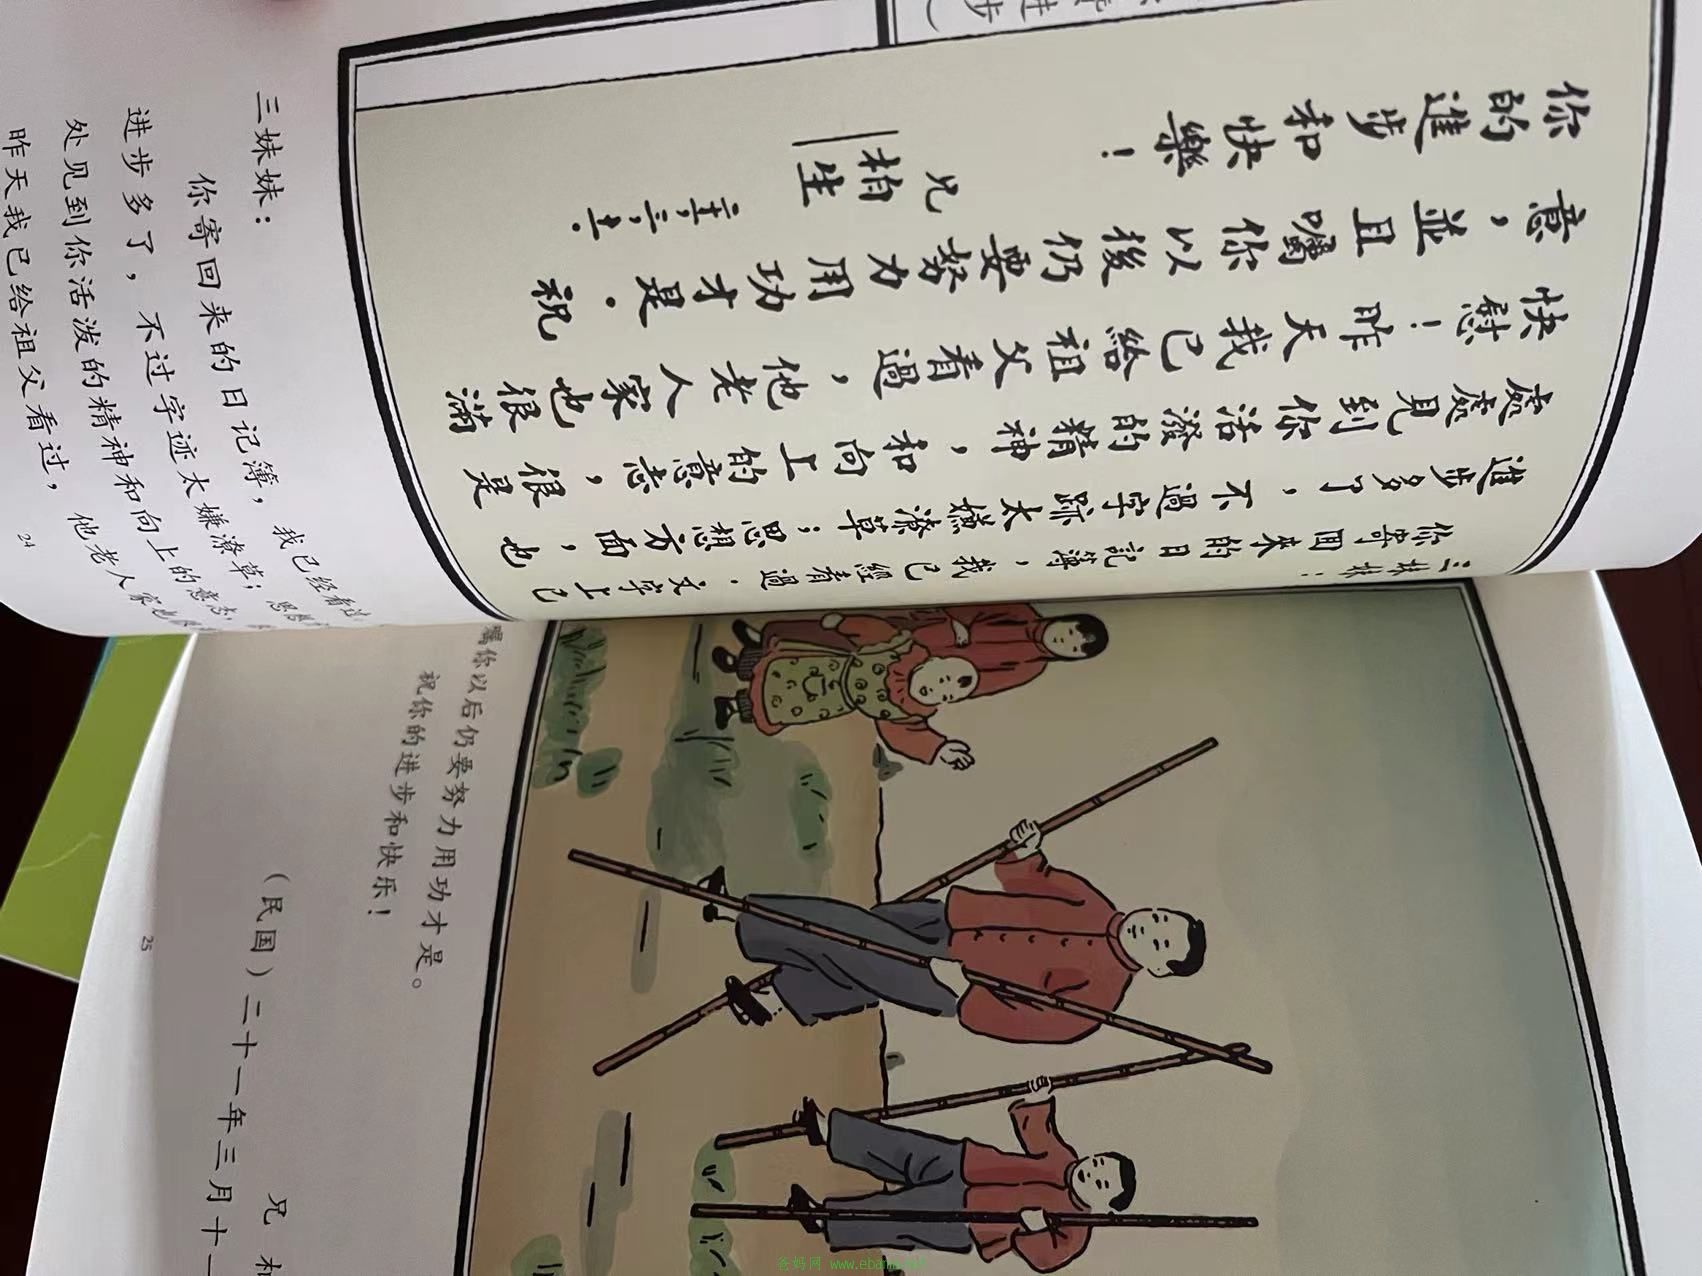 三妹妹：
你寄回來的日記簿，我已經看過．文字上已
進步多了，不過字跡太嫌潦草；思想方面，也
處處見到你活潑的精神，和向上的意志，很是
快慰！昨天我已給祖父看過，他老人家也很滿
意，並且囑你以後仍要努力用功才是．祝
你的進步和快樂！
兄
柏生
进步
三妹妹：
你寄回来的日记簿，我已经看过
进步多了，不过字迹太嫌潦草；思想
处见到你活泼的精神和向上的意志，
昨天我已给祖父看过，他老人家也很
24
嘱你以后仍要努力用功才是。
祝你的进步和快乐！
兄 柏
（民国）二十一年三月十
25
爸妈网 www.ebama.net